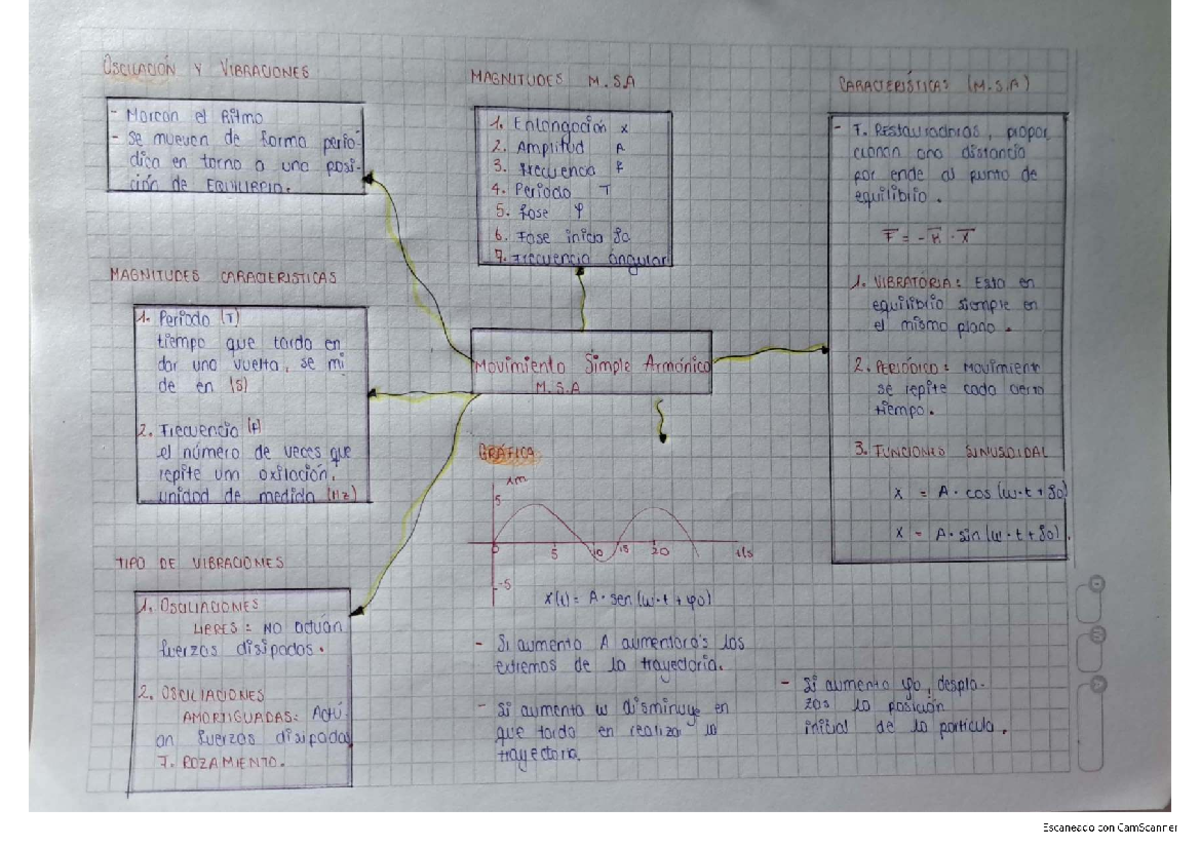 OSCILACIÓN Y VIBRACIONES
- Marcan el Ritmo
- Se mueven de forma perió-
dica en torno a una posi-
ción de EQUILIBRIO.
MAGNITUDES CARACTERISTICAS
1. Periodo (T)
tiempo que tarda en
dar una vuelta, se mi
de en (S)
2. Frecuencia (F)
el número de veces que
repite um oxilación.
unidad de medida (Hz)
TIPO DE VIBRACIONES
1. OSCILIACIONES
LIBRES: NO actúan
fuerzas disipadas.
2. OSCILIACIONES
AMORTIGUADAS: Actú-
an fuerzas disipadas
F. ROZAMIENTO.
MAGNITUDES M.S.A
1. Enlongación x
2. Amplitud A
3. Frecuencia F
4. Periodo T
5. fase φ
6. Fase inicia φo
7. Frecuencia ángular
Movimiento Simple Armónico
M.S.A
GRÁFICA
x/m
5
0 5 10 15 20 t/s
-5
x(t) = A · sen (w · t + φo)
- Si aumento A aumentarás los
extremos de la trayectoria.
- Si aumenta w disminuye en
que tarda en realizar la
trayectoria.
- Si aumenta φo, despla-
zas la posición
inicial de la particula.
CARACTERÍSTICAS (M.S.A)
- F. Restauradoras, propor
cionan una distancia
por ende al punto de
equilibrio.
F = - K · X
1. VIBRATORIA: Esta en
equilibrio siempre en
el mismo plano.
2. PERIÓDICO: Movimiento
se repite cada cierto
tiempo.
3. FUNCIONES SINUSOIDAL
x = A · cos (w · t + φo)
x = A · sin (w · t + φo).
Escaneado con CamScanner